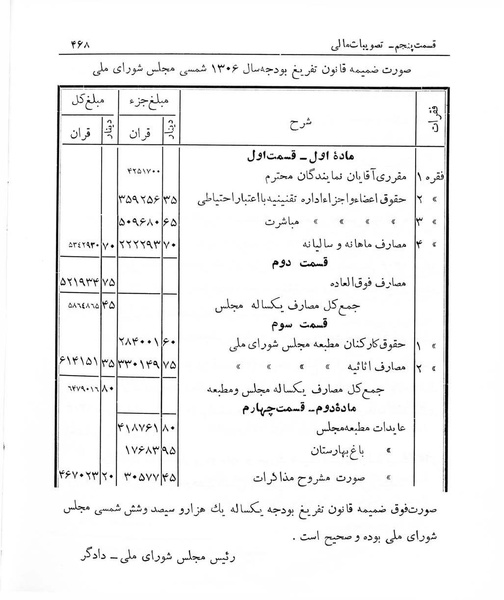 قسمت پنجم ـ تصویبات مالی ۴۶۸
صورت ضمیمه قانون تفریغ بودجه سال ۱۳۰۶ شمسی مجلس شورای ملی
فقرات شرح مبلغ جزء مبلغ کل
دینار قران دینار قران
مادهٔ اول ـ قسمت اول
فقره ۱ مقرری آقایان نمایندگان محترم ۴۲۵۱۷۰۰
» ۲ حقوق اعضاء و اجزاء اداره تقنینیه با اعتبار احتیاطی ۳۵ ۳۵۹۲۵۶
» ۳ » » » مباشرت ۶۵ ۵۰۹۶۸۰
» ۴ مصارف ماهانه و سالیانه ۷۰ ۲۲۲۲۹۳ ۷۰ ۵۳۴۲۹۳۰
قسمت دوم
مصارف فوق‌العاده ۷۵ ۵۲۱۹۳۴
جمع کل مصارف یکساله مجلس ۴۵ ۵۸۶۴۸۶۵
قسمت سوم
» ۱ حقوق کارکنان مطبعه مجلس شورای ملی ۶۰ ۲۸۴۰۰۱
» ۲ مصارف اثاثیه » » » » ۷۵ ۳۳۰۱۴۹ ۳۵ ۶۱۴۱۵۱
جمع کل مصارف یکساله مجلس و مطبعه ۸۰ ۶۴۷۹۰۱۶
مادهٔ دوم ـ قسمت چهارم
عایدات مطبعه مجلس ۸۰ ۴۱۸۷۶۱
» باغ بهارستان ۹۵ ۱۷۶۸۳
» صورت مشروح مذاکرات ۴۵ ۳۰۵۷۷ ۲۰ ۴۶۷۰۲۳
صورت فوق ضمیمه قانون تفریغ بودجه یکساله یك هزار و سیصد و شش شمسی مجلس
شورای ملی بوده و صحیح است .
رئیس مجلس شورای ملی ـ دادگر